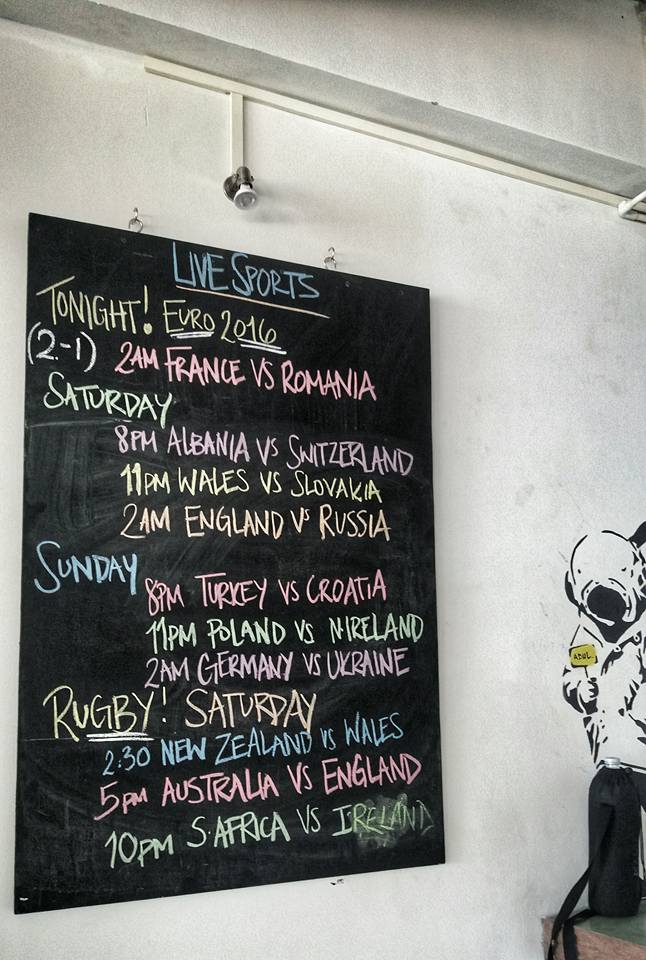 LIVE SPORTS
TONIGHT! EURO 2016
(2-1) 2AM FRANCE VS ROMANIA
SATURDAY
8PM ALBANIA VS SWITZERLAND
11PM WALES VS SLOVAKIA
2AM ENGLAND VS RUSSIA
SUNDAY
8PM TURKEY VS CROATIA
11PM POLAND VS N·IRELAND
2AM GERMANY VS UKRAINE
RUGBY! SATURDAY
2:30 NEW ZEALAND VS WALES
5PM AUSTRALIA VS ENGLAND
10PM S·AFRICA VS IRELAND